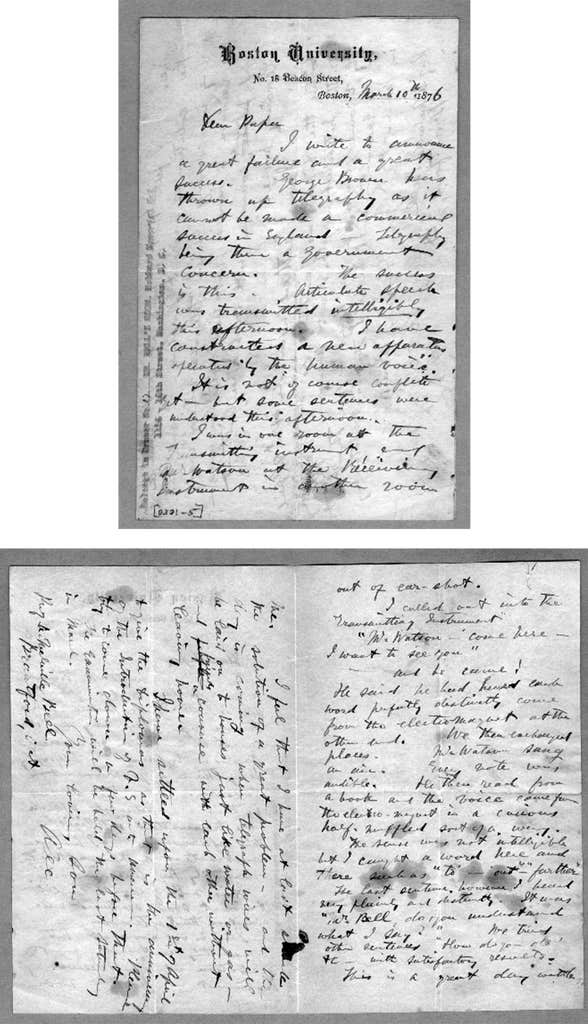 Boston University,
No. 18 Beacon Street,
Boston, March 10th 1876
Dear Papa
I write to announce
a great failure and a great
success. George Brown has
thrown up telegraphy as it
cannot be made a commercial
success in England — Telegraphy
being there a Government
concern. The success
is this. Articulate speech
was transmitted intelligibly
this afternoon. I have
constructed a new apparatus
operated by the human voice.
It is not of course complete
yet — but some sentences were
understood this afternoon.
I was in one room at the
Transmitting instrument and
Mr Watson at the Receiving
Instrument in another room
[0321-5]
out of ear-shot.
I called out into the
Transmitting Instrument
"Mr Watson — come here —
I want to see you"
— and he came!
He said he had heard each
word perfectly distinctly come
from the electro-magnet at the
other end. We then exchanged
places. Mr Watson sang
an air. Every note was
audible. He then read from
a book and the voice came from
the electro-magnet in a curious
half-muffled sort of a way.
The sense was not intelligible
but I caught a word here and
there such as "to" — "out" — "further"
The last sentence however I heard
very plainly and distinctly. It was
"Mr Bell do you understand
what I say?" We tried
other sentences "How do you do"
&c — with satisfactory results.
This is a great day with
me. I feel that I have at last
the solution of a great problem — and the
day is coming when telegraph wires will
be laid on to houses just like water or gas —
and friends converse with each other without
leaving home.
I have settled upon the 12th April
as that is the anniversary
of the Introduction of V. S. Please
to come
the Government
in March.
Your loving son
Alec
Prof. A. Melville Bell
Brantford, Ont